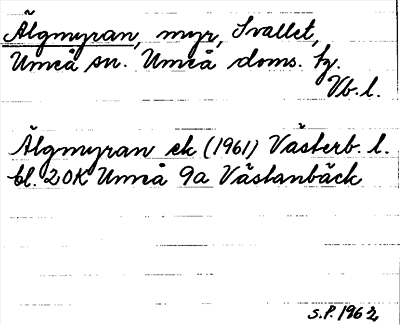 Älgmyran, myr, Svallet,
Umeå sn. Umeå doms. tg.
Vb. l.
Älgmyran ek (1961) Västerb. l.
bl. 20K Umeå 9a Västanbäck
S.P. 1962